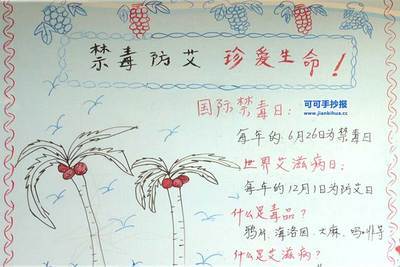 禁毒防艾 珍爱生命！
可可手抄报
www.jiankihua.cc
国际禁毒日：
每年的6月26日为禁毒日
世界艾滋病日：
每年的12月1日为防艾日
什么是毒品？
鸦片、海洛因、大麻、吗啡等
什么是艾滋病？